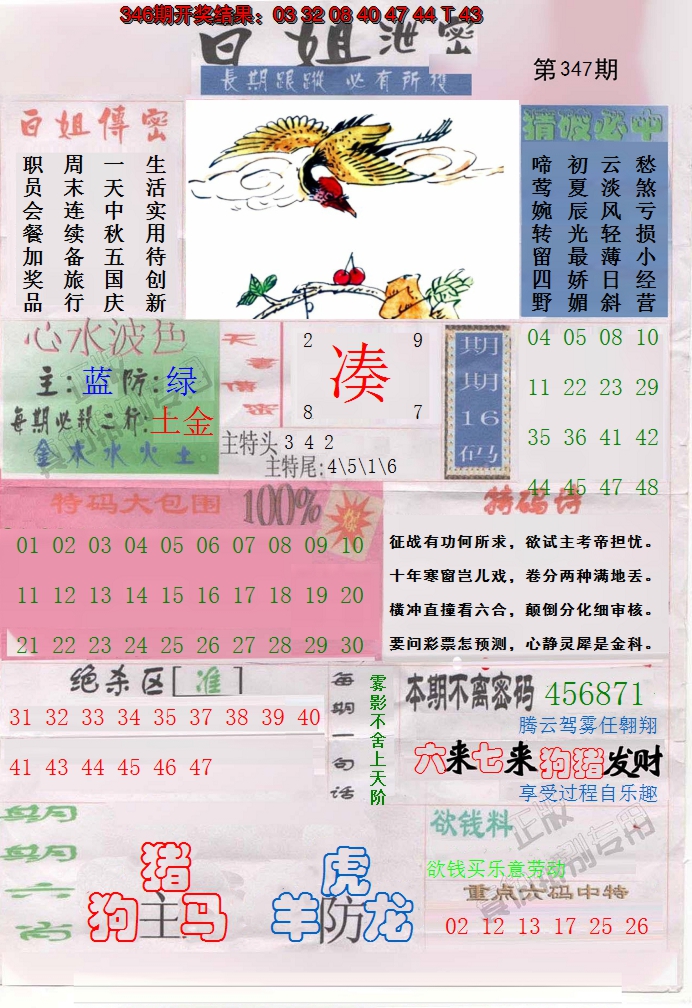 346期开奖结果：03 32 08 40 47 44 T 43
白姐泄密
長期跟蹤 必有所獲
第347期
白姐傳密
生活实用待创新
一天中秋五国庆
周末连续备旅行
职员会餐加奖品
猜波必中
愁煞亏损小经营
云淡风轻薄日斜
初夏辰光最娇媚
啼莺婉转留四野
心水波色
主:蓝防:绿
每期必殺二行:土金
金木水火土
天書信密
2 9
凑
8 7
主特头342
主特尾:4\5\1\6
期期16码
04 05 08 10
11 22 23 29
35 36 41 42
44 45 47 48
特码大包围 100%
01 02 03 04 05 06 07 08 09 10
11 12 13 14 15 16 17 18 19 20
21 22 23 24 25 26 27 28 29 30
特码诗
征战有功何所求，欲试主考帝担忧。
十年寒留岂儿戏，卷分两种满地丢。
横冲直撞看六合，颠倒分化细审核。
要问彩票怎预测，心静灵犀是金科。
绝杀区[准]
31 32 33 34 35 37 38 39 40
41 43 44 45 46 47
每期一句话
雾影不舍上天阶
本期不离密码 456871
腾云驾雾任翱翔
六来七来狗猪发财
享受过程自乐趣
每期
每期
六
肖
猪
狗主马
虎
羊防龙
欲钱料
欲钱买乐意劳动
重点六码中特
02 12 13 17 25 26